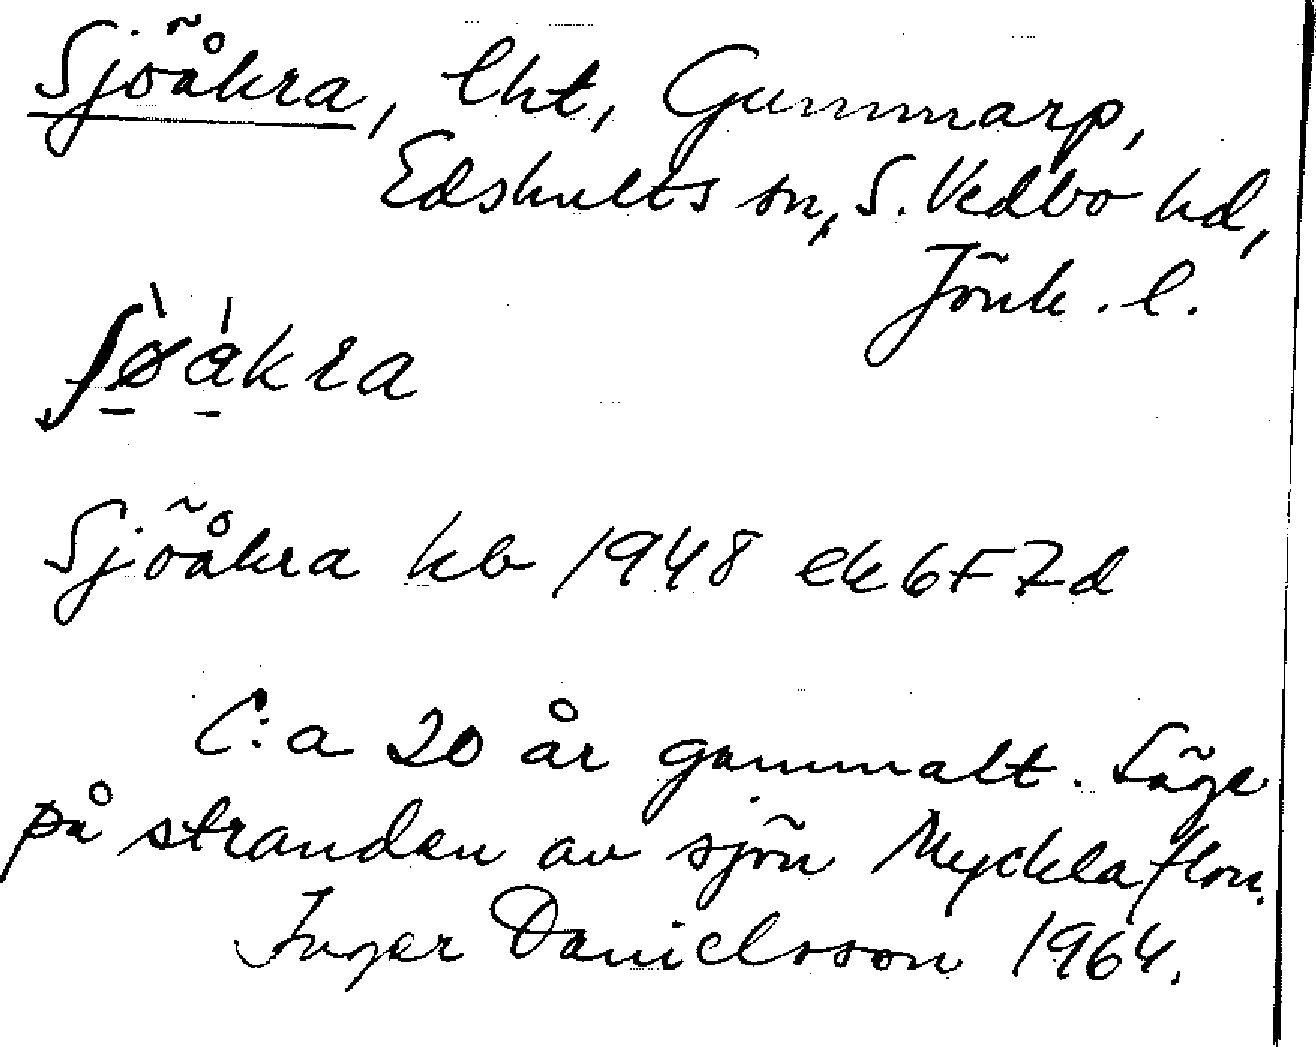 Sjöåkra, lht, Gummarp,
Edshults sn, S. Vedbo hd,
Jönk. l.
ʃø̱̀á̱kra
Sjöåkra kb 1948 ek 6F7d
C:a 20 år gammalt. Läge
på stranden av sjön Mycklaflon.
Inger Danielsson 1964.